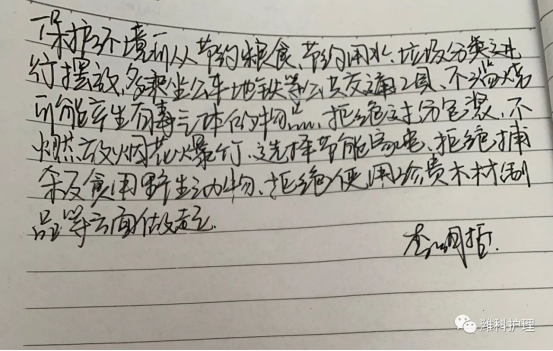 保护环境可从节约粮食、节约用水、垃圾分类进
行摆放,多乘坐公车地铁等公共交通工具、不焚烧
可能产生有毒气体的物品、拒绝过分包装、不
燃放烟花爆竹、选择节能家电、拒绝捕
杀及食用野生动物、拒绝使用珍贵木材制
品等方面做起.
李明哲.
潍科护理